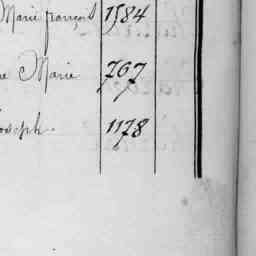 Marie françois 1584
ne Marie 767
Joseph. 1178